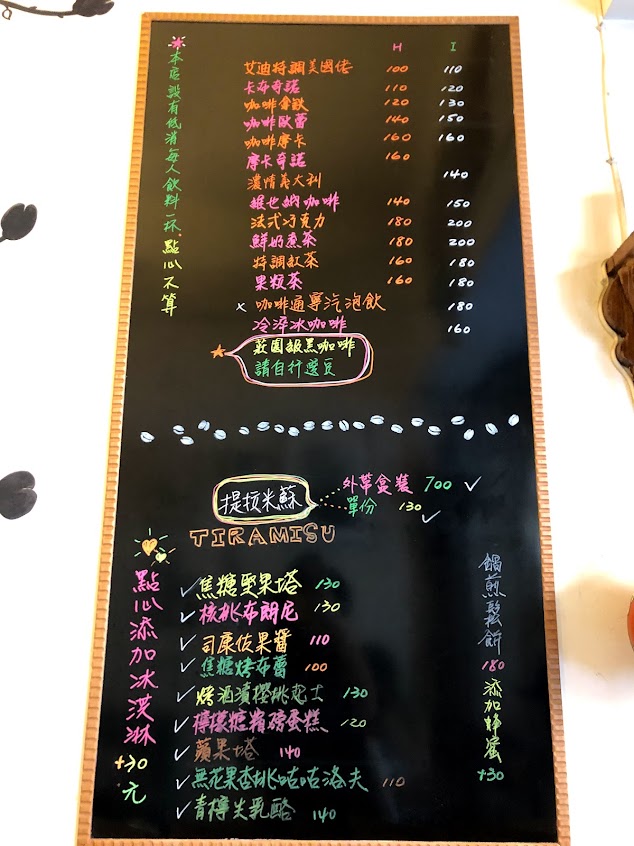 本店設有低消每人飲料一杯.點心不算
H I
艾迪特調美國佬 100 110
卡布奇諾 110 120
咖啡拿鐵 120 130
咖啡歐蕾 140 150
咖啡摩卡 160 160
摩卡奇諾 160
濃情義大利 140
維也納咖啡 140 150
法式巧克力 180 200
鮮奶煮茶 180 200
特調紅茶 160 180
果粒茶 160 180
x 咖啡通寧汽泡飲 180
冷淬冰咖啡 160
莊園級黑咖啡
請自行選豆
提拉米蘇
外帶盒裝 700
單份 130
TIRAMISU
焦糖堅果塔 130
核桃布朗尼 130
司康佐果醬 110
焦糖烤布蕾 100
烤酒漬櫻桃起士 130
檸檬糖霜磅蛋糕 120
蘋果塔 140
無花果杏桃咕咕洛夫 110
青檸生乳酪 140
點心添加冰淇淋
+30
元
鍋煎鬆餅
180
添加蜂蜜
+30